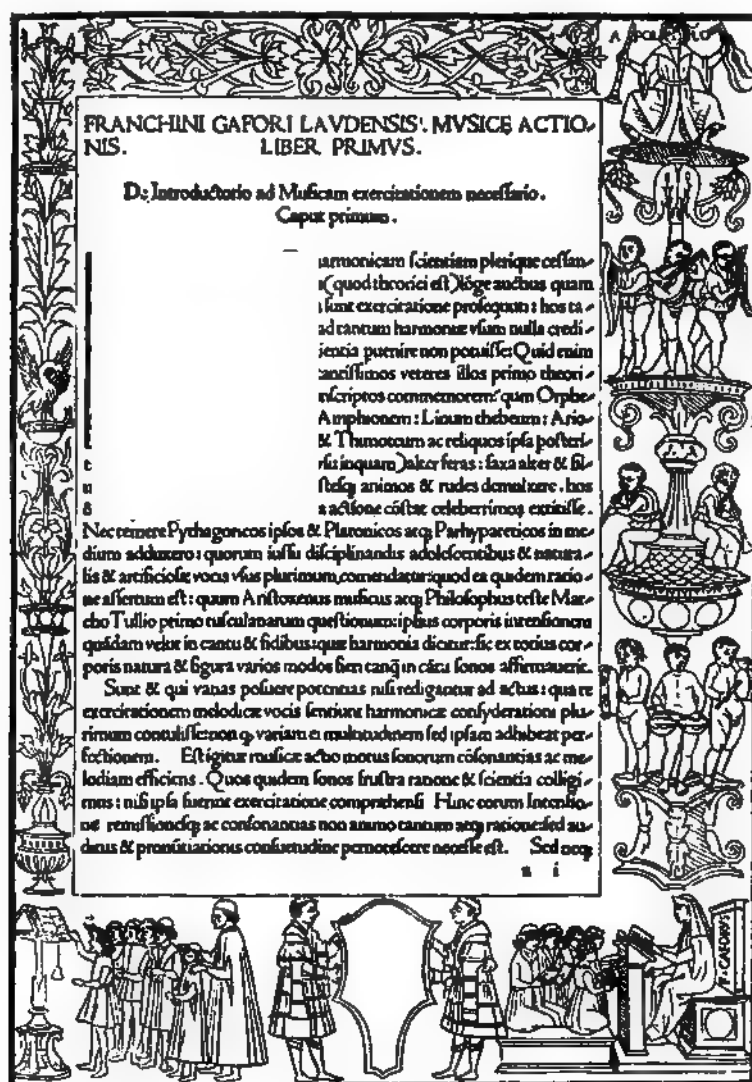 FRANCHINI GAFORI LAVDENSIS. MVSICĘ ACTIO-
NIS. LIBER PRIMVS.
De Introductorio ad Musicam exercitationem necessario.
Caput primum.
armonicam scientiam plerique cessan-
(quod theorici est) lõge auctius quam
sunt exercitatione prosequuti: hos ta-
ad tantum harmoniæ vsum nulla credi-
ientia puenire non potuisse: Quid enim
antissimos veteres illos primo theori-
nscriptos commemorem: quum Orphe-
Amphionem: Linum thebeum: Ario-
& Thimoteum ac reliquos ipsa posteri-
rsu inquam) alter feras: saxa alter & sil-
stesq; animos & rudes demulxere. hos
a actione cõstat celeberrimos extitisse.
Nec temere Pythagoricos ipsos & Platonicos atq; Parhypateticos in me-
dium adduxero: quorum iussu disciplinandis adolescentibus & natura-
lis & artificiosæ vocis vsus plurimum comendatur: quod ea quidem ratio-
ne assertum est: quum Aristoxenus musicus atq; Philosophus teste Mar-
cho Tullio primo tusculanarum questionum: ipsius corporis intensionem
quãdam velut in cantu & fidibus: quæ harmonia dicitur: sic ex totius cor-
poris natura & figura varios modos fieri tanq̃ in cãtu sonos affirmauerit.
Sunt & qui vanas posuere potentias nisi redigantur ad actus: qua re
exercitationem melodicæ vocis sentiunt harmonicæ consyderationi plu-
rimum contulisse: non q, variam ei multitudinem sed ipsam adhibeat per-
fectionem. Est igitur musicæ actio motus sonorum cõsonantias ac me-
lodiam efficiens. Quos quidem sonos frustra ratione & scientia colligi-
mus: nisi ipsa fuerint exercitatione comprehensi Hinc eorum Intensio-
ne remissioneq; ac consonantias non animo tantum atq; ratione: sed au-
ditus & pronũtiationis consuetudine pernoscere necesse est. Sed neq;
a i
F. GAFORIVS